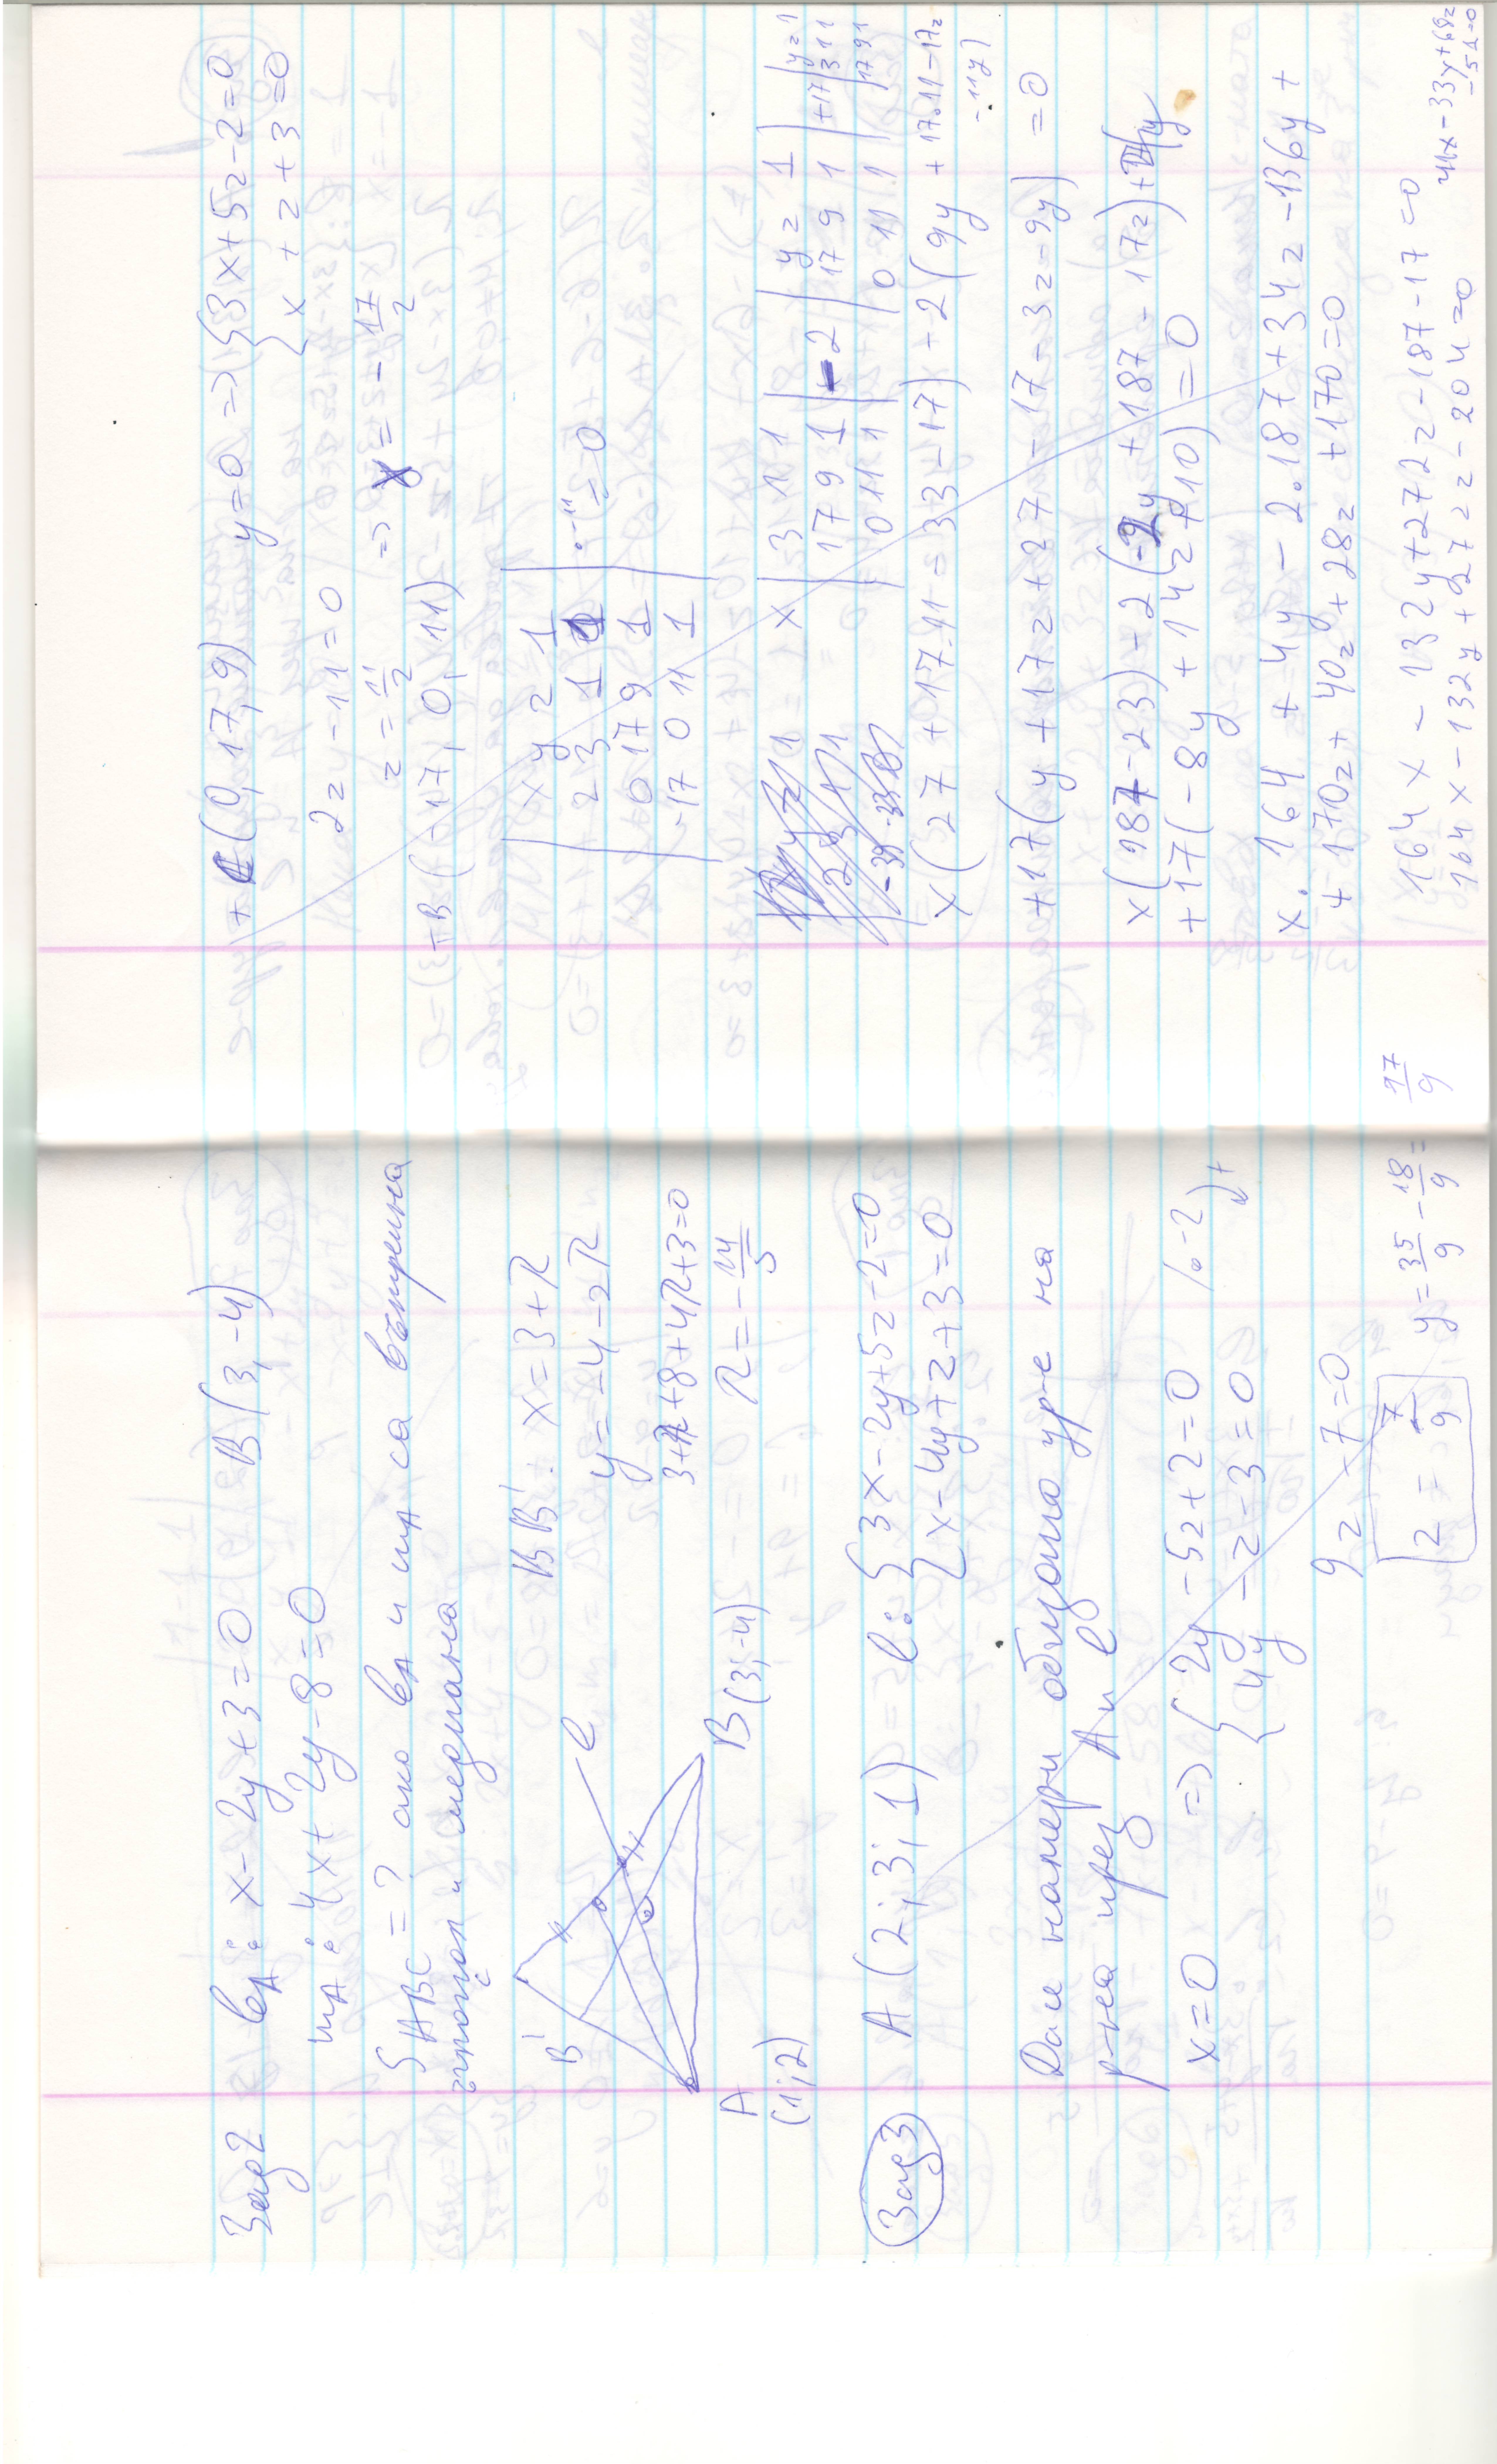 Зад2 l_A: x-2y+3=0 B(3,-4)
m_A: 4x+2y-8=0
S_ABC=? ако l_A и m_A са вътрешна
ъглопол и медиана
BB': x=3+R
y=-4-2R
3+R+8+4R+3=0
R=-14/5
B'
l
A
(1;2)
B(3;-4)
Зад3 A(2;3;1) l: {3x-2y+5z-2=0
{x-4y+z+3=0
Да се намери общото ур-е на
р-на през A и l
x=0 => {2y-5z+2=0 /.-2)+
{4y-z-3=0
9z-7=0
z=7/9 y=35/9-18/9=17/9
(0,17,9) y=0 => {3x+5z-2=0
{x+z+3=0
2z-11=0
z=11/2 => x=-17/2
B(-17,0,11)
|x y z 1|
|2 3 1 1|
|0 17 9 1|
|-17 0 11 1| =0
x |3 1 1| -2 |y z 1| +17 |y z 1|
|17 9 1| |17 9 1| |3 1 1|
|0 11 1| |0 11 1| |17 9 1|
x(27+17.11-33-17)+2(9y+17.11-17z
-11y)
+17(y+17z+27-17-3z-9y)=0
x(187-23)-2(-2y+187-17z)+
+17(-8y+14z+10)=0
x.164+4y-2.187+34z-136y+
+170z+40z+28z+170=0
164x-132y+272z-187-17=0
164x-132y+272z-204=0
41x-33y+68z
-51=0